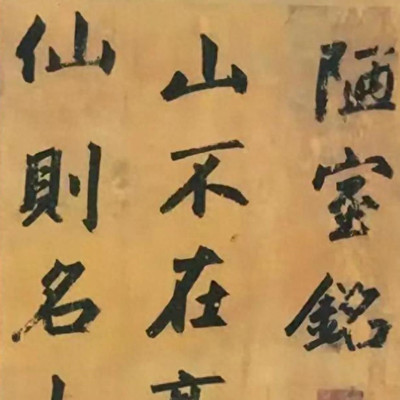 陋室銘
山不在高
仙則名